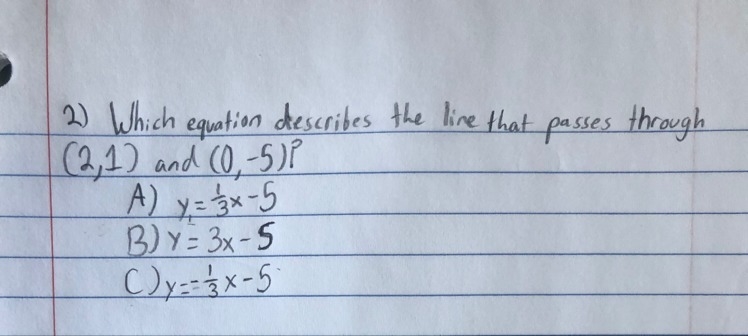 2) Which equation describes the line that passes through
(2,1) and (0,-5)?
A) y = 1/3 x - 5
B) y = 3x - 5
C) y = -1/3 x - 5